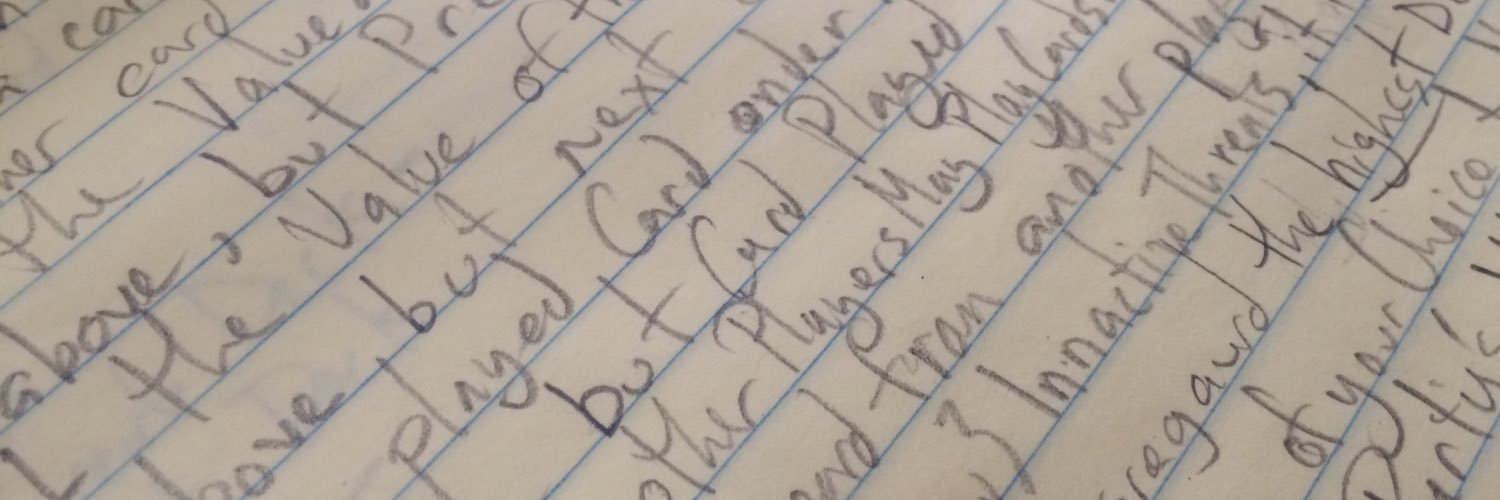 card
the Value
above, but Pre
the Value of th
bove but next
Played Card under
but Card Played
other Players May Play Cards
from another Pla
3 Innactive Threats
regaurd the highest
of your Choice